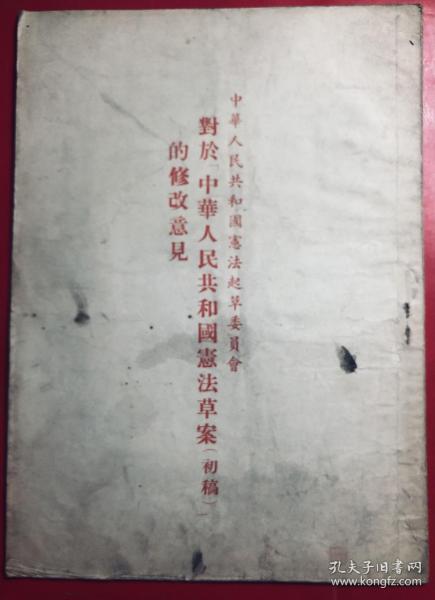 中華人民共和國憲法起草委員會
對於「中華人民共和國憲法草案(初稿)」
的修改意見
孔夫子旧书网
www.kongfz.com